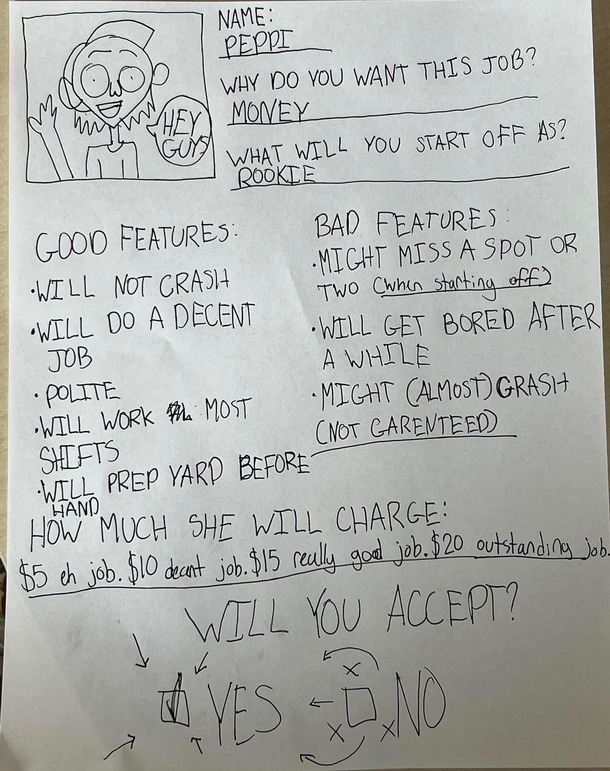 NAME:
PEPPI
WHY DO YOU WANT THIS JOB?
MONEY
WHAT WILL YOU START OFF AS?
ROOKIE
HEY
GUYS
GOOD FEATURES:
•WILL NOT CRASH
•WILL DO A DECENT
JOB
•POLITE
•WILL WORK MOST
SHIFTS
•WILL PREP YARD BEFORE
HAND
BAD FEATURES:
•MIGHT MISS A SPOT OR
TWO (when starting off)
•WILL GET BORED AFTER
A WHILE
•MIGHT (ALMOST) CRASH
(NOT GARENTEED)
HOW MUCH SHE WILL CHARGE:
$5 eh job. $10 decent job. $15 really good job. $20 outstanding job.
WILL YOU ACCEPT?
YES NO